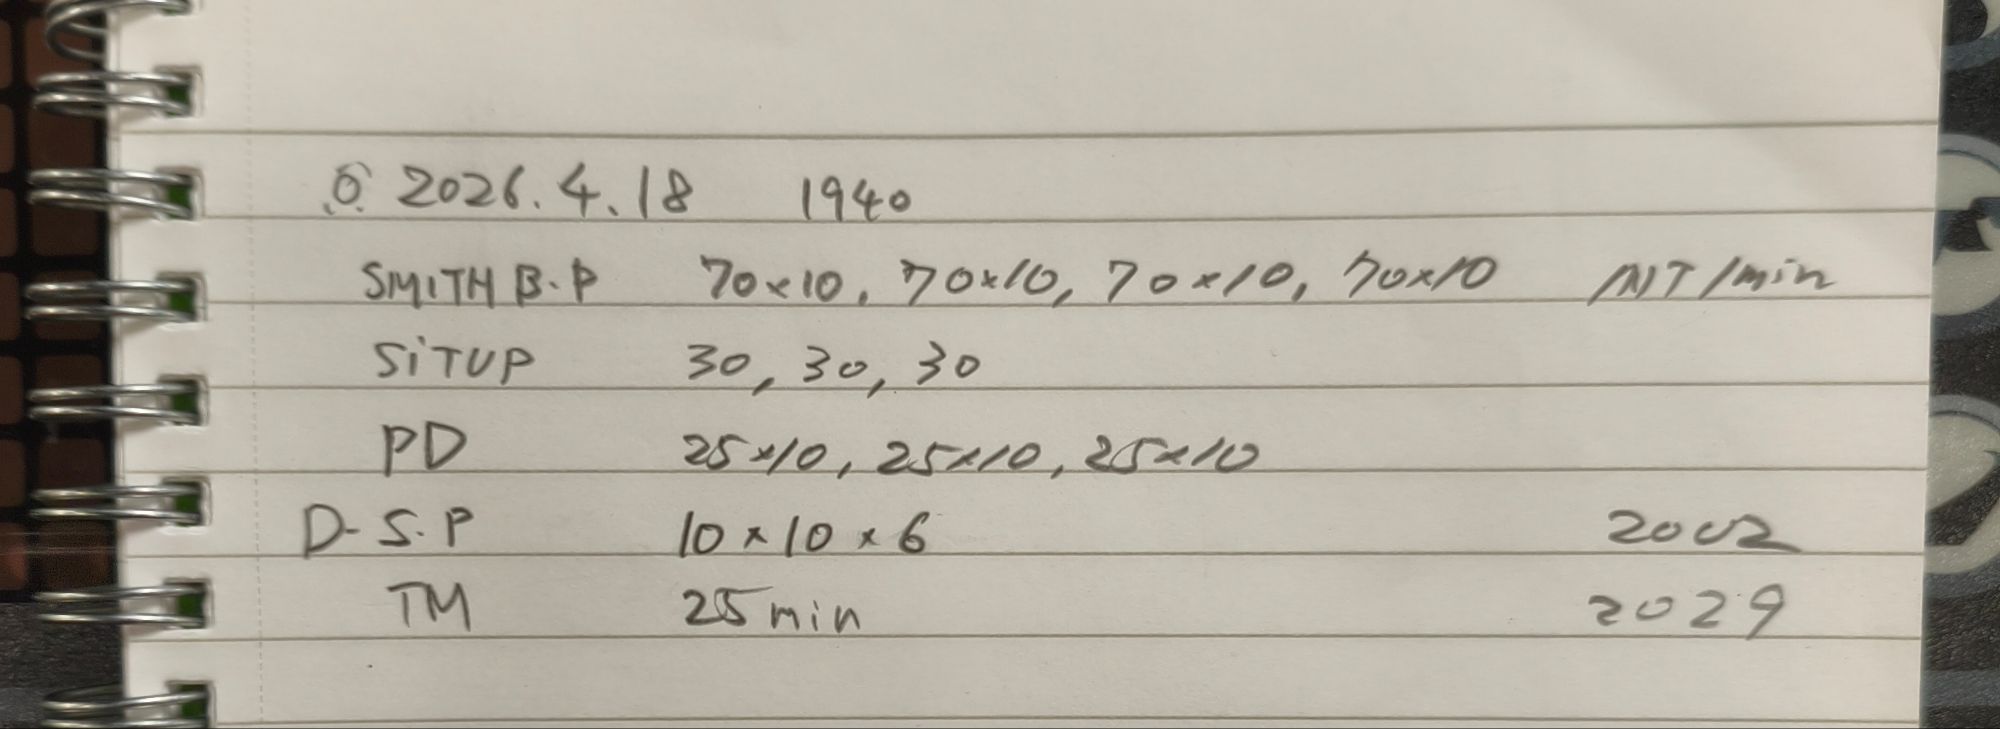 2026.4.18 1940
SMITH B.P 70×10, 70×10, 70×10, 70×10 INT 1min
SiTUP 30, 30, 30
PD 25×10, 25×10, 25×10
D-S.P 10×10×6 2002
TM 25min 2029